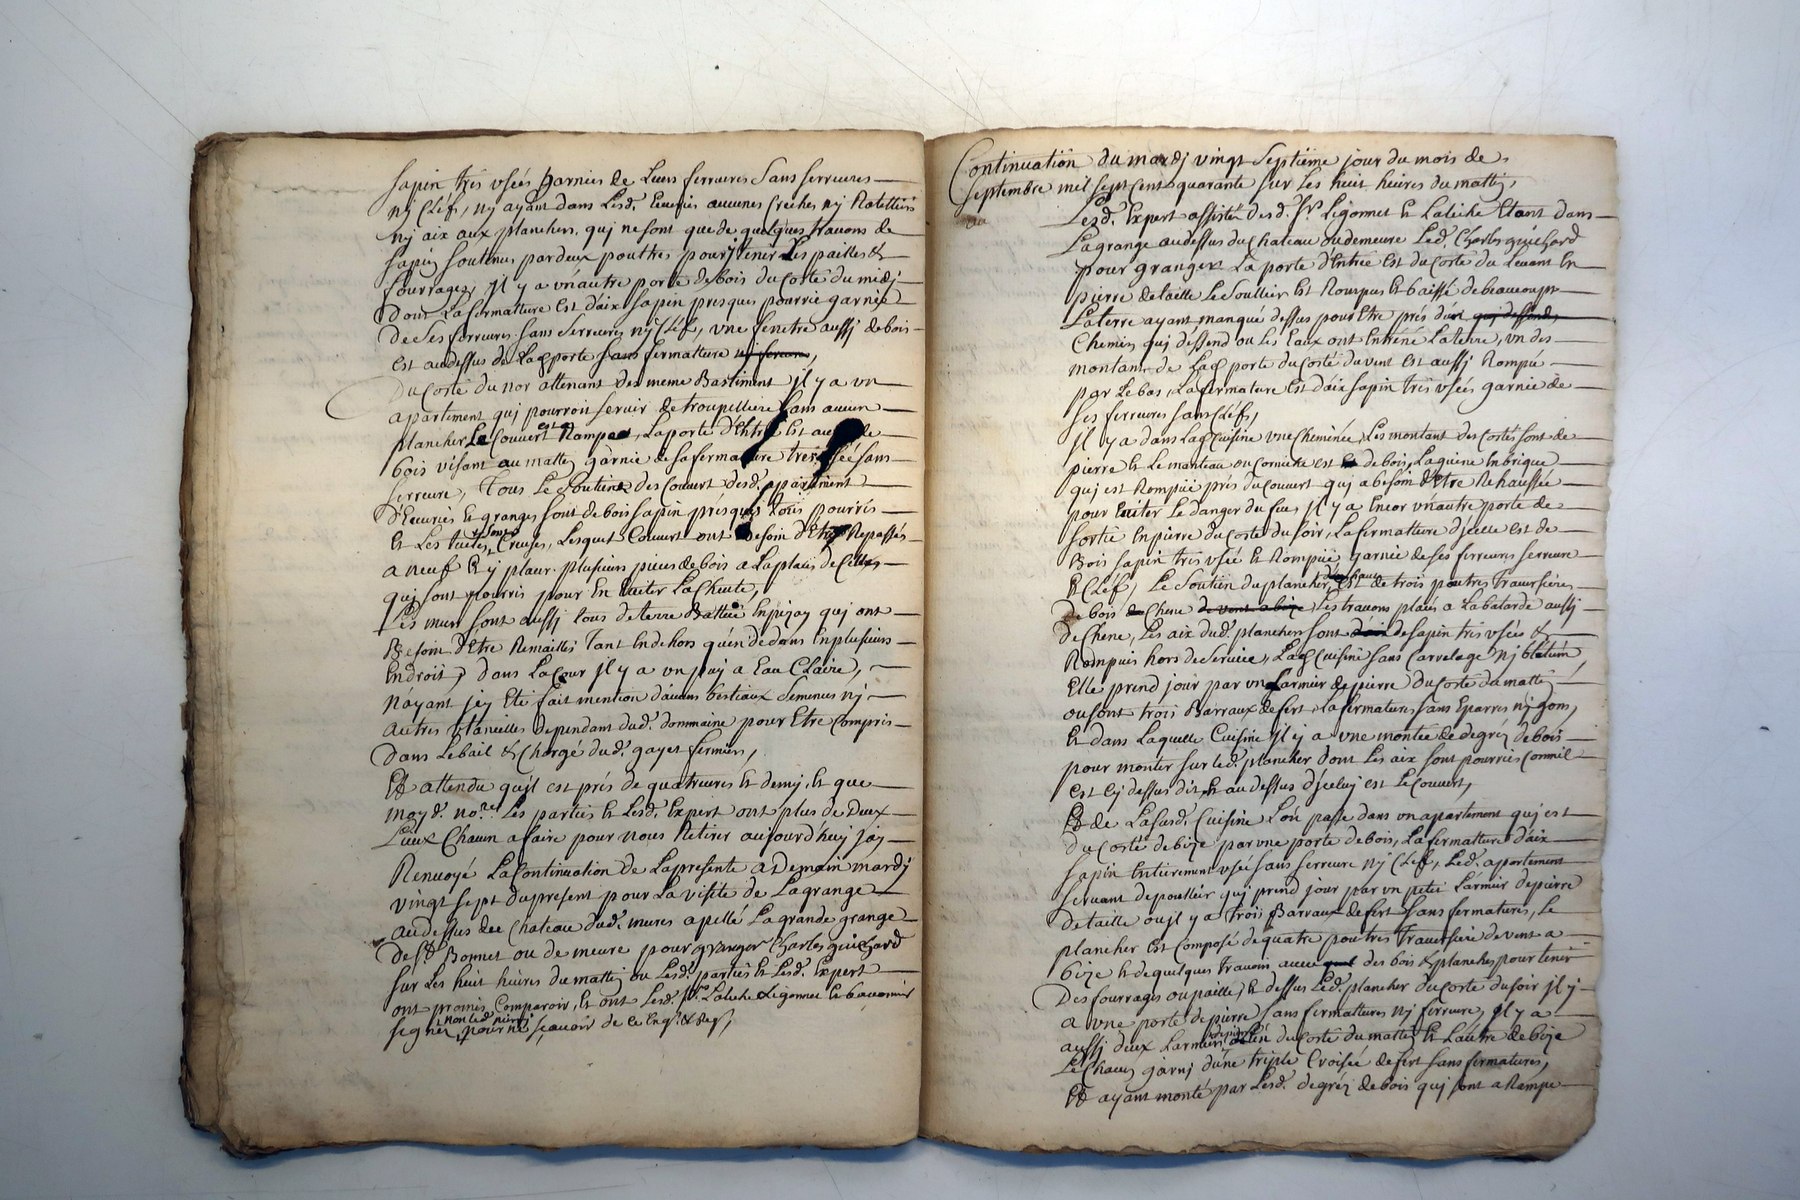 sapin tres usées garnies de Leurs ferreures sans serreures
ny Clef, ny ayant dans Lesd. Ecuries aucunes Creches ny Rateliers
ny aix aux planchers, qui ne sont que de quelques travons de
sapin soutenus par deux poutres pour y tenir Les pailles &
fourrages, Il y a un autre porte de bois du Coste du midy
Dont La fermatture est d'aix sapin presques pourrie garnie
de ses ferreures sans serreures ny Clef, une fenetre aussy de bois
est audessus de Lad porte sans fermatture ny ferreures,
Du Costé du nor attenant des meme Bastiment il y a un
apartement qui pourroit servir de troupelliere sans aucun
plancher Le Couvert est Rampant, La porte d'Entrée est aussy de
bois visant au mattin garnie de sa fermatture tres usée sans
serreure, Tous Le Soutien des Couvert desd. apartement
d'Ecuries Et granges sont de bois sapin presques tous pourris
Et Les tuiles sont Creuses, Lesquels Couvert ont Besoin d'Etre Repassés
a neuf Et y placer plusieurs pieces de bois a La place de Celles
qui sont pourris pour En Eviter La Cheute,
Les murs sont aussy tous de terre Battue En pizay qui ont
Besoin d'Etre Remaillés Tant En dehors qu'en dedans En plusieurs
Endroit, dans La Cour Il y a un puy a Eau Claire,
N'ayant icy Eté fait mention d'aucuns bestiaux semences ny
autres Utancilles dependans dud. dommaine pour Etre Compris
Dans Le bail & Chargé dud. gayet fermier,
Et attendu qu'il est prés de quatre heures Et demy, Et que
moyd. no.re Les parties Et Lesd. Expert ont plus de Deux
Lieux Chacun a faire pour nous Retirer aujourd'huy j'ay
Renvoyé La Continuation de La presente a Demain mardy
vingt sept du present pour La visitte de La grange
au dessus du Chateau dud. mures apellé La grande grange
De Sd. Bonnet ou de meure pour granger Charles guichard
sur Les huit heures du mattin ou Lesd. parties Et Lesd. Expert
ont promis Comparoir, Et ont Lesd. Srs. Laliche Ligonnet Et
signés non Led. pour ne sçavoir de ce Enq.s & Req.s,
Continuation du mardy vingt septieme jour du mois de
septembre mil sept cent quarante sur Les huit heures du mattin,
Lesd. Expert assistés desd. Srs. Ligonnet Et Laliche Etant dans
La grange au dessus du Chateau ou demeure Led. Charles guichard
pour granger La porte d'Entrée est du Coste du Levant En
pierre de taille Le Soullier Est Rompus Et baissé de beaucoup
La terre ayant manqué dessus pour Etre prés d'un qui dessend
Chemin qui dessend ou Les Eaux ont Entrené La terre, un des
montant de Lad porte du Costé du vent est aussy Rompu
par Le bas, La fermature est d'aix sapin tres usées garnie de
ses ferreures sans Clef,
Il y a dans Lad Cuisine une Cheminée, Les montant des Costés sont de
pierre Et Le manteau ou Corniche est de bois, La quene En brique
qui est Rompüe prés du Couvert qui a besoin d'Etre Rehaussée
pour Eviter Le danger du feu, Il y a Encor un autre porte de
sortie En pierre du Coste du soir, La fermatture d'jcelle est de
Bois sapin tres usée Et Rompüe garnie de ses ferreures serreure
Et Clef, Le Soutien du plancher est de trois poutres traversieres
de bois Chene de vent a bize, Les travons placés a La batarde aussy
de Chene, Les aix dud. plancher sont de sapin tres usées &
Rompues hors de Service, Lad Cuisine sans Carrelage ny
Elle prend jour par un Larmier de pierre du Costé du mattin
ou sont trois Barraux de fert, La fermature sans Eparres ny gons,
Et dans Laquelle Cuisine Il y a une montée de degrés de bois
pour monter sur Led. plancher dont Les aix sont pourries Comm'il
est Cy dessus dit, Et au dessus d'jceluy est Le Couvert,
Et de La susd. Cuisine L'on passe dans un apartement qui est
du Costé de bize par une porte de bois, La fermatture d'aix
sapin Entierement usés sans serreure ny Clef, Led. apartement
servant de poullier qui prend jour par un petit Larmier de pierre
de taille ou il y a trois Barraux de fert sans fermatures, Le
plancher est Composé de quatre poutres traversiere de vent a
bize Et de quelques travons des bois & planches pour tenir
Des fourrages ou paille, Et dessus Led. plancher du Coste du soir Il y
a une porte de pierre sans fermattures ny ferreure, Il y a
aussy deux Larmiers du Costé du mattin Et L'autre de bize
Le Chacun garny d'une triple Croisée de fert sans fermatures,
Et ayant monté par Lesd. degrés de bois qui sont a Rampe